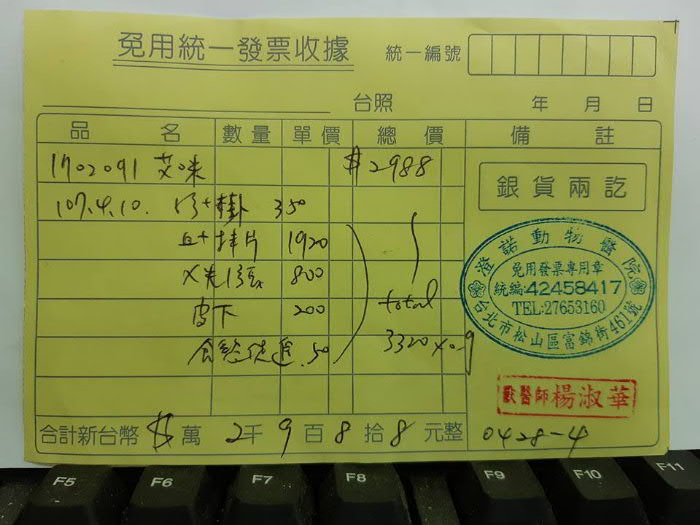 免用統一發票收據
統一編號
台照 年 月 日
品 名 數量 單價 總價 備註
1702091 艾咪 $2988
107.4.10. 掛 350
血 片 1920
X光1張 800
皮下 200
50
total
3320x0.9
銀貨兩訖
澄諾動物醫院
免用發票專用章
統編:42458417
TEL:27653160
台北市松山區富錦街461號
獸醫師 楊淑華
合計新台幣 $ 萬 2 千 9 百 8 拾 8 元整
0428-4
F5 F6 F7 F8 F9 F10 F11